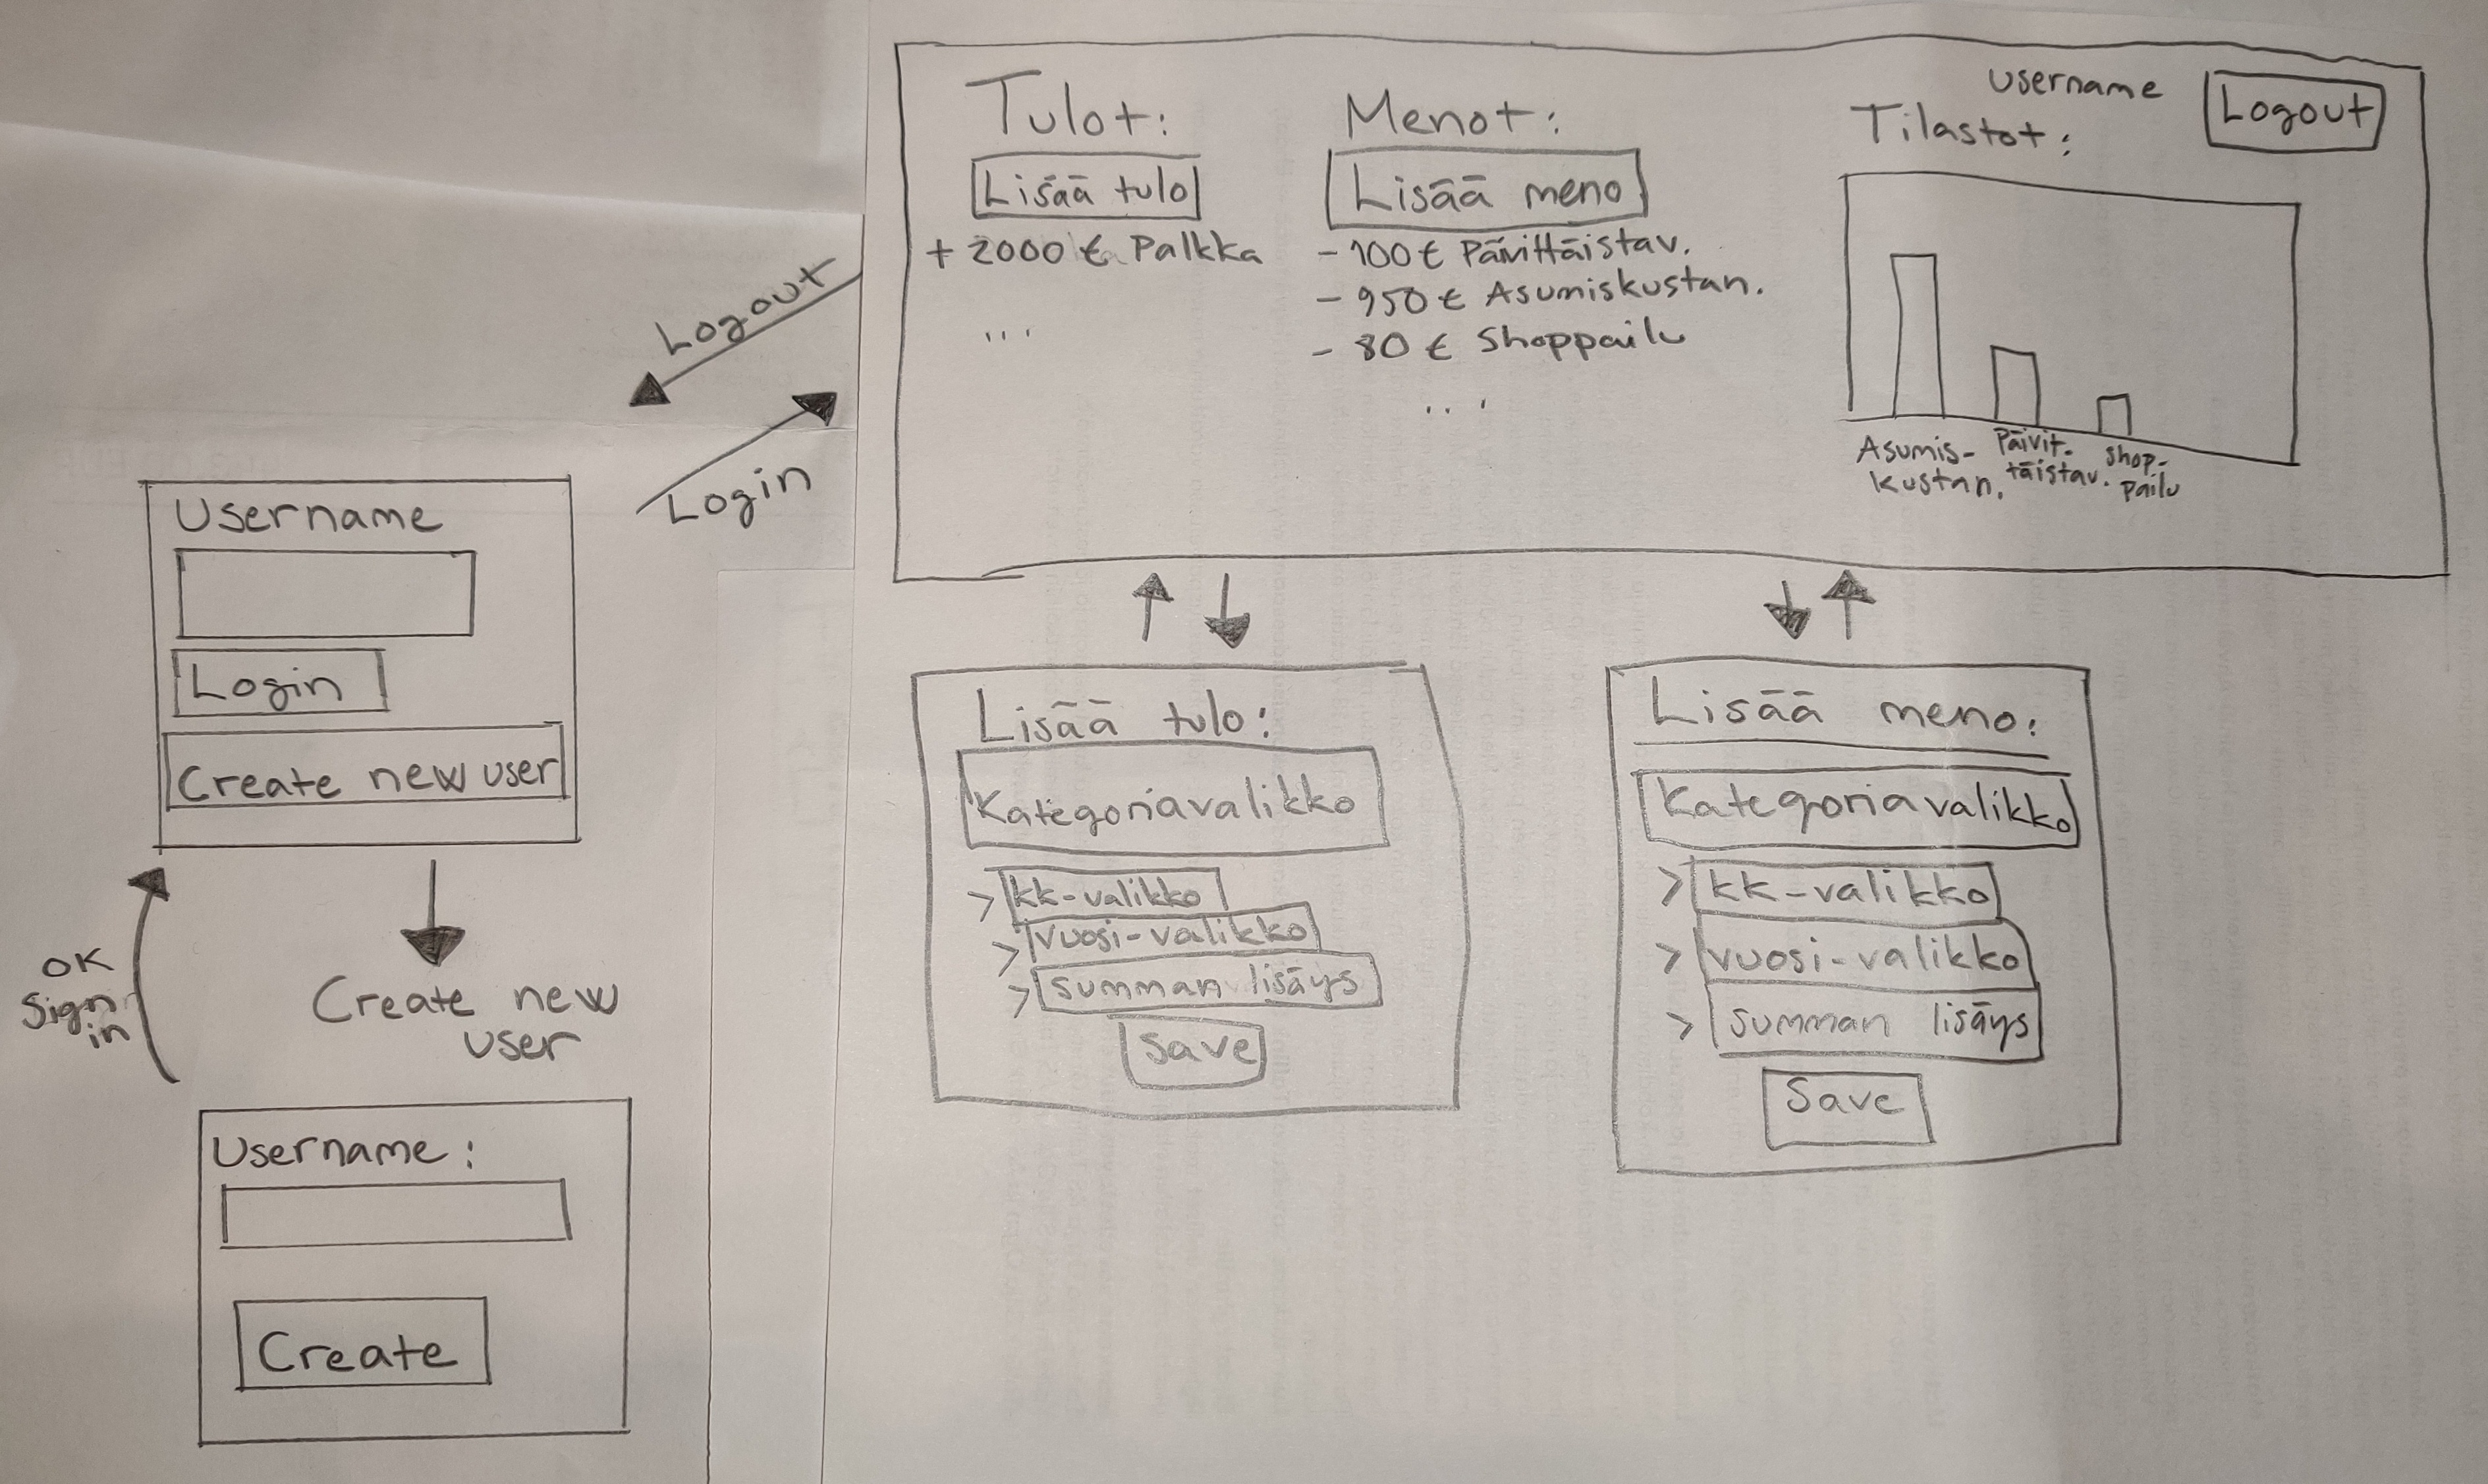 Username
Login
Create new user
OK
Sign
in
Create new
user
Username:
Create
Logout
Login
Tulot:
Lisää tulo
+ 2000 € Palkka
...
Menot:
Lisää meno
- 100 € Päivittäistav.
- 950 € Asumiskustan.
- 80 € Shoppailu
...
Username
Logout
Tilastot:
Asumis-
kustan.
Päivit-
täistav.
Shop-
pailu
Lisää tulo:
Kategoriavalikko
> kk-valikko
> vuosi-valikko
> summan lisäys
Save
Lisää meno:
Kategoriavalikko
> kk-valikko
> vuosi-valikko
> summan lisäys
Save